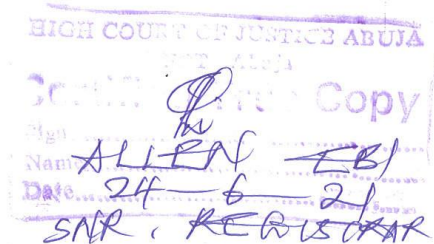 HIGH COURT OF JUSTICE ABUJA
Abuja
Copy
Sign
Name
ALLEN EBI
Date 24-6-21
SNR. REGISTRAR